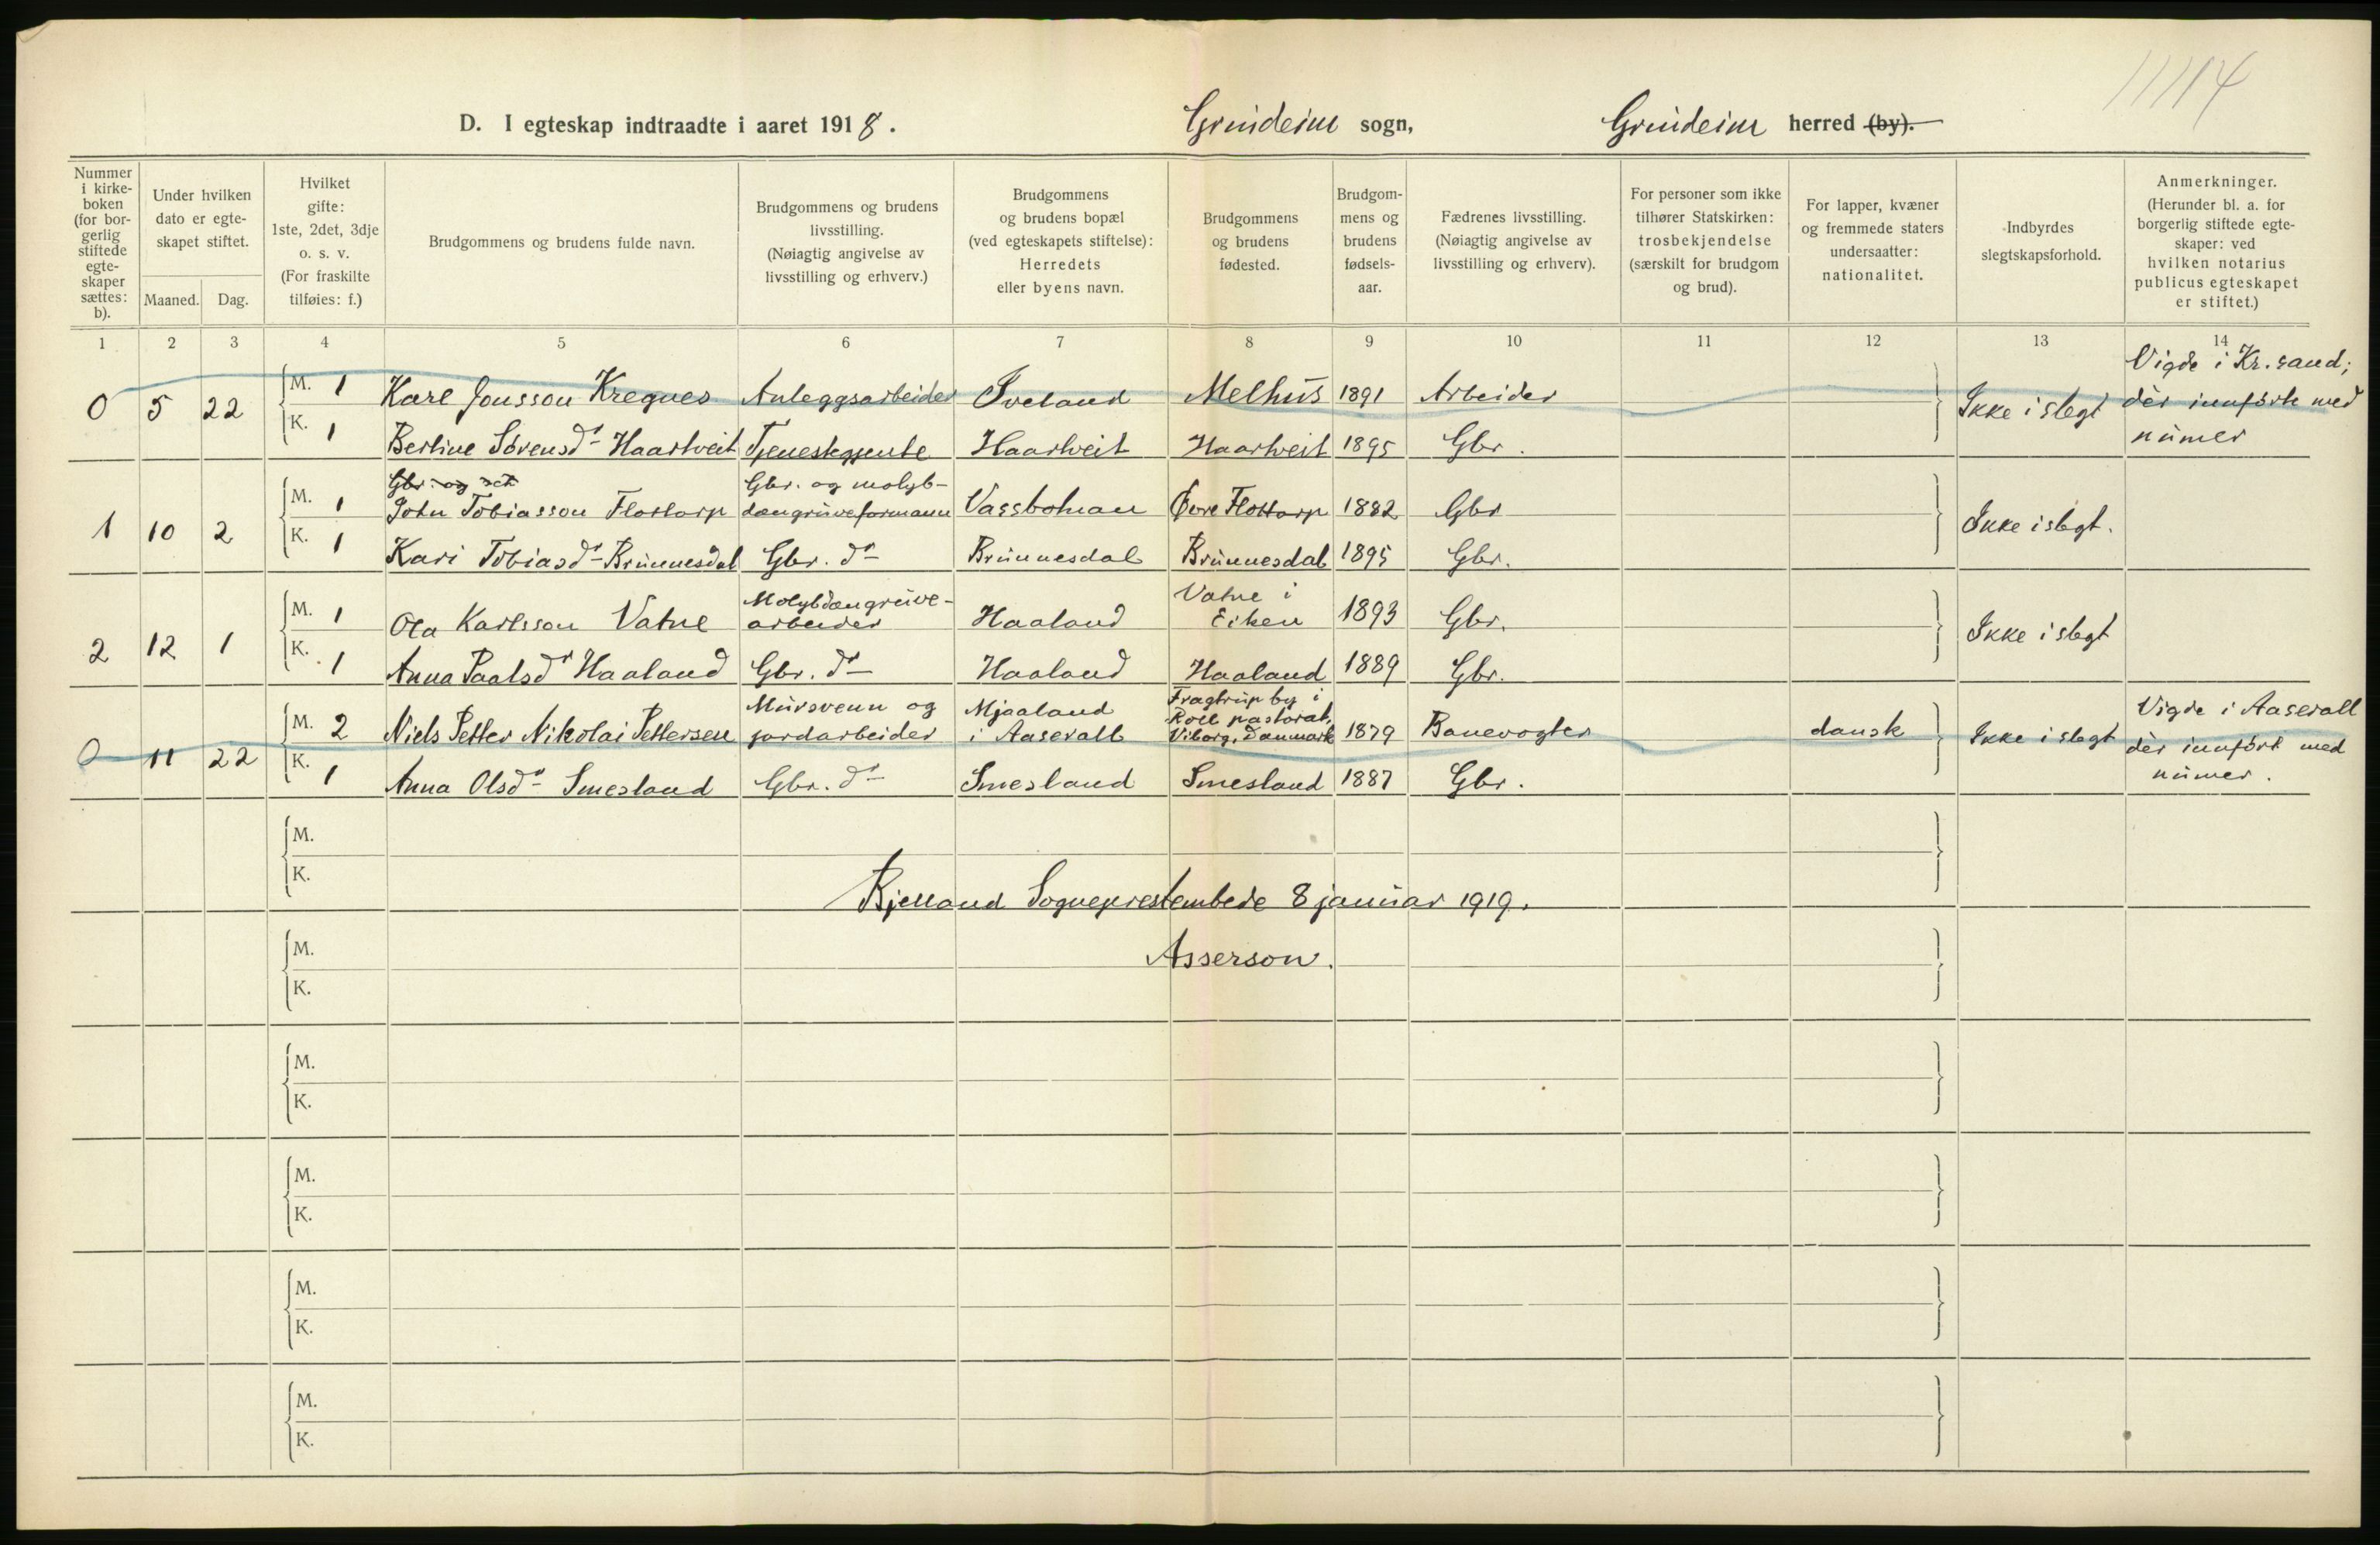 11114
D. I egteskap indtraadte i aaret 1918. Grindeim sogn, Grindeim herred (by).
Nummer i kirkeboken (for borgerlig stiftede egteskaper sættes: b).
Under hvilken dato er egteskapet stiftet.
Maaned. Dag.
Hvilket gifte: 1ste, 2det, 3dje o. s. v. (For fraskilte tilføies: f.)
Brudgommens og brudens fulde navn.
Brudgommens og brudens livsstilling. (Nøiagtig angivelse av livsstilling og erhverv.)
Brudgommens og brudens bopæl (ved egteskapets stiftelse): Herredets eller byens navn.
Brudgommens og brudens fødested.
Brudgommens og brudens fødselsaar.
Fædrenes livsstilling. (Nøiagtig angivelse av livsstilling og erhverv).
For personer som ikke tilhører Statskirken: trosbekjendelse (særskilt for brudgom og brud).
For lapper, kvæner og fremmede staters undersaatter: nationalitet.
Indbyrdes slegtskapsforhold.
Anmerkninger. (Herunder bl. a. for borgerlig stiftede egteskaper: ved hvilken notarius publicus egteskapet er stiftet.)
1 2 3 4 5 6 7 8 9 10 11 12 13 14
0 5 22 M. 1 Karl Jonsson Kregnes Anleggsarbeider Iveland Melhus 1891 Arbeider Ikke i slegt Vigde i Kr.sand; dèr innførte med numer
K. 1 Berline Sørensdr Haartveit Tjenestegjente Haartveit Haartveit 1895 Gbr.
1 10 2 M. 1 John Tobiasson Flottorp Gbr. og molybdængruveformann Vassboman Øvre Flottorp 1882 Gbr Ikke i slegt.
K. 1 Kari Tobiasdr Brunnesdal Gbr. dr Brunnesdal Brunnesdal 1895 Gbr.
2 12 1 M. 1 Ola Karlsson Vatne Molybdængruvearbeider Haaland Vatne i Eiken 1893 Gbr. Ikke i slegt
K. 1 Anna Paalsdr Haaland Gbr. dr Haaland Haaland 1889 Gbr.
0 11 22 M. 2 Niels Petter Nikolai Pettersen Mursvenn og jordarbeider Mjaaland i Aaserall Fragtrup by i Roll pastorat, Viborg, Danmark 1879 Banevogter dansk Ikke i slegt Vigde i Aaserall dèr innført med numer.
K. 1 Anna Olsdr Smesland Gbr. dr Smesland Smesland 1887 Gbr.
M.
K.
Bjelland Sogneprestembede 8 januar 1919.
M.
Asserson.
K.
M.
K.
M.
K.
M.
K.
M.
K.